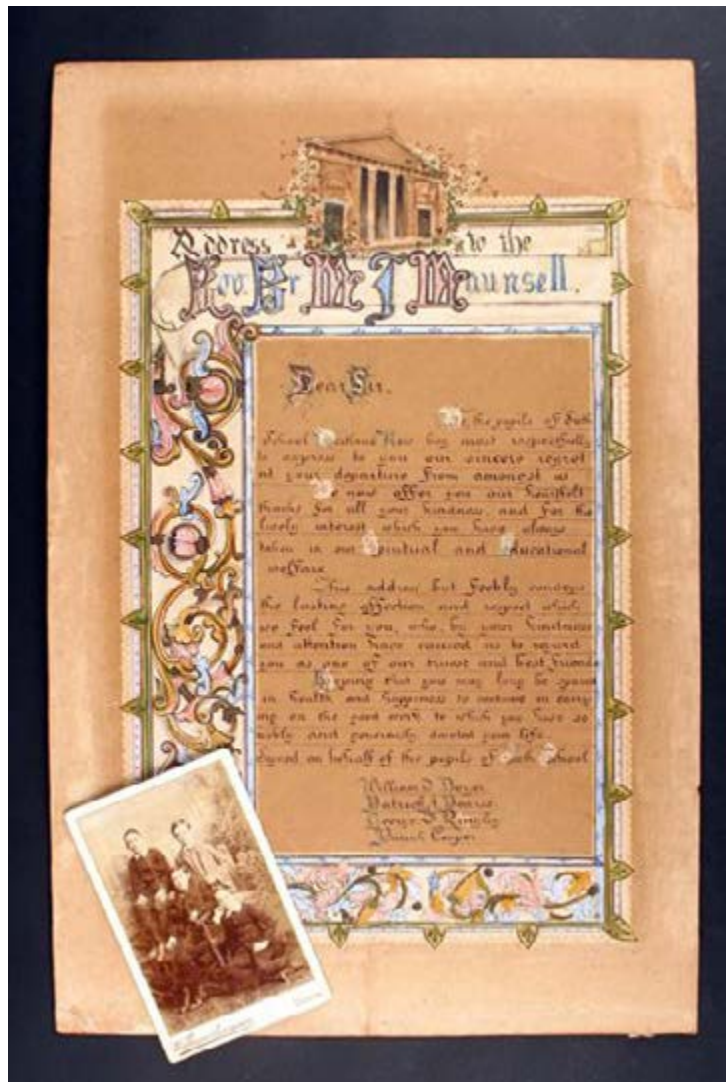 Address to the
Rev. Br M J Maunsell.
Dear Sir.
We the pupils of
School Row beg most respectfully
to express to you our sincere regret
at your departure from amongst us
We now offer you our heartfelt
thanks for all your kindness, and for the
lively interest which you have always
taken in our Spiritual and Educational
welfare
This address but feebly conveys
the lasting affection and respect which
we feel for you, who, by your kindness
and attention have caused us to regard
you as one of our truest and best friends
Hoping that you may long be spared
in health and happiness to continue in carry
ing on the good work to which you have so
nobly and generously devoted your life.
Signed on behalf of the pupils of School
William
Patrick
George